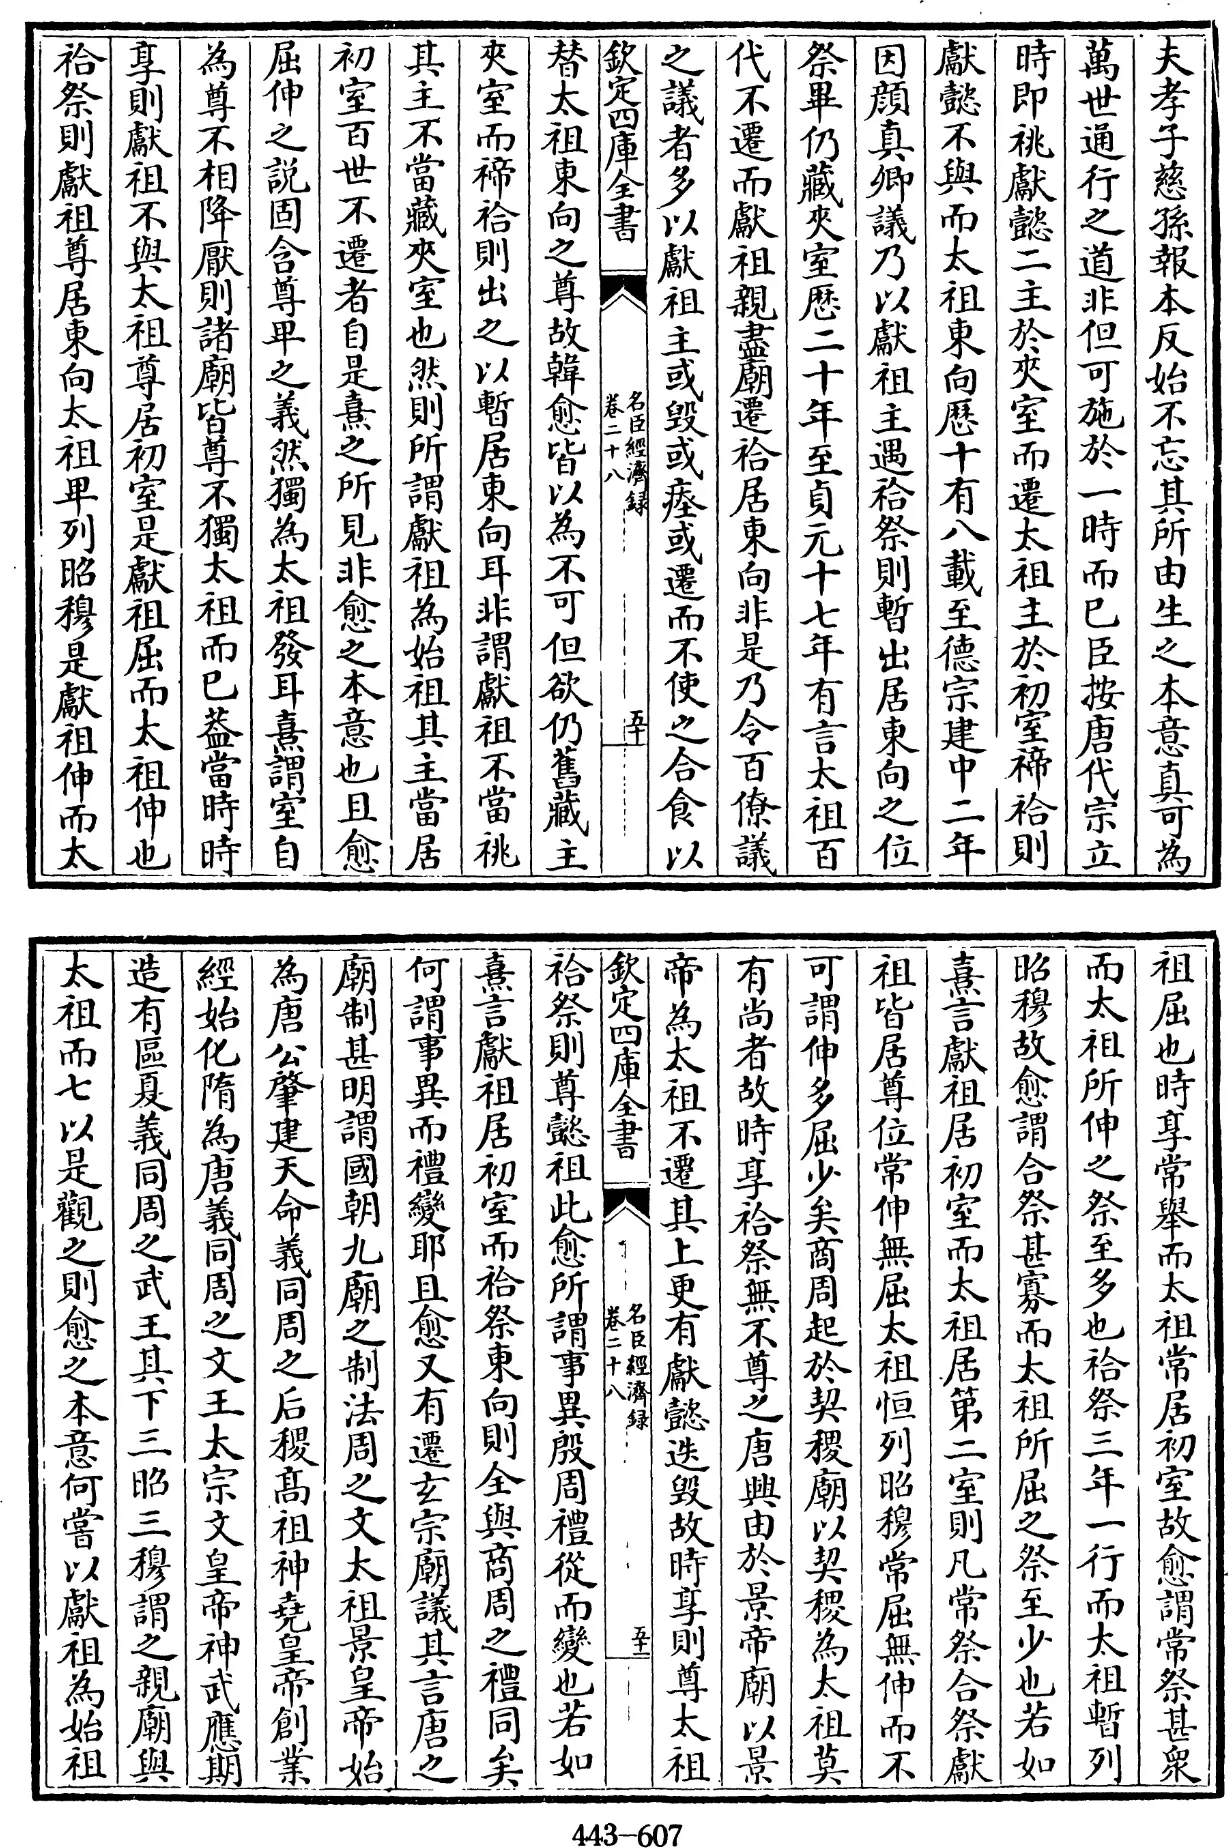 夫孝子慈孫報本反始不忘其所由生之本意真可為
萬世通行之道非但可施於一時而已臣按唐代宗立
時即祧獻懿二主於夾室而遷太祖主於初室禘祫則
獻懿不與而太祖東向歴十有八載至德宗建中二年
因顔真卿議乃以獻祖主遇祫祭則暫出居東向之位
祭畢仍藏夾室歴二十年至貞元十七年有言太祖百
代不遷而獻祖親盡廟遷祫居東向非是乃令百僚議
之議者多以獻祖主或毀或瘞或遷而不使之合食以
欽定四庫全書
名臣經濟録
卷二十八
五十
替太祖東向之尊故韓愈皆以為不可但欲仍舊藏主
夾室而禘祫則出之以暫居東向耳非謂獻祖不當祧
其主不當藏夾室也然則所謂獻祖為始祖其主當居
初室百世不遷者自是熹之所見非愈之本意也且愈
屈伸之説固含尊卑之義然獨為太祖發耳熹謂室自
為尊不相降厭則諸廟皆尊不獨太祖而已葢當時時
享則獻祖不與太祖尊居初室是獻祖屈而太祖伸也
祫祭則獻祖尊居東向太祖卑列昭穆是獻祖伸而太
祖屈也時享常舉而太祖常居初室故愈謂常祭甚衆
而太祖所伸之祭至多也祫祭三年一行而太祖暫列
昭穆故愈謂合祭甚寡而太祖所屈之祭至少也若如
熹言獻祖居初室而太祖居第二室則凡常祭合祭獻
祖皆居尊位常伸無屈太祖恒列昭穆常屈無伸而不
可謂伸多屈少矣商周起於契稷廟以契稷為太祖莫
有尚者故時享祫祭無不尊之唐興由於景帝廟以景
帝為太祖不遷其上更有獻懿迭毀故時享則尊太祖
欽定四庫全書
名臣經濟録
卷二十八
五十一
祫祭則尊懿祖此愈所謂事異殷周禮從而變也若如
熹言獻祖居初室而祫祭東向則全與商周之禮同矣
何謂事異而禮變耶且愈又有遷玄宗廟議其言唐之
廟制甚明謂國朝九廟之制法周之文太祖景皇帝始
為唐公肇建天命義同周之后稷髙祖神堯皇帝創業
經始化隋為唐義同周之文王太宗文皇帝神武應期
造有區夏義同周之武王其下三昭三穆謂之親廟與
太祖而七以是觀之則愈之本意何嘗以獻祖為始祖
443-607